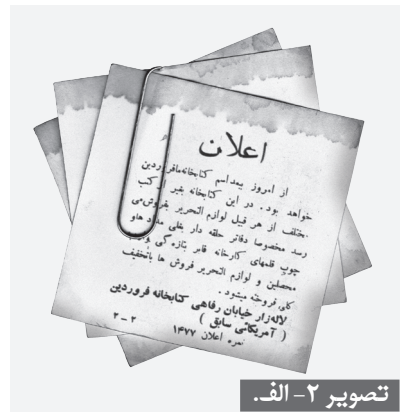 اعلان
از امروز ببعد اسم کتابخانه ما فروردین
خواهد بود. در این کتابخانه بغیر از کتب
مختلف از هر قبیل لوازم التحریر بفروش می
رسد مخصوصا دفاتر حلقه دار بغلی مداد هاو
چوب قلمهای کارخانه فابر بتازه گی
محصلین و لوازم التحریر فروش ها باتخفیف
کلی فروخته میشود.
لاله‌زار خیابان رفاهی کتابخانه فروردین
( آمریکائی سابق )
۲-۲
نمره اعلان ۱۴۷۷
تصویر ۲- الف.